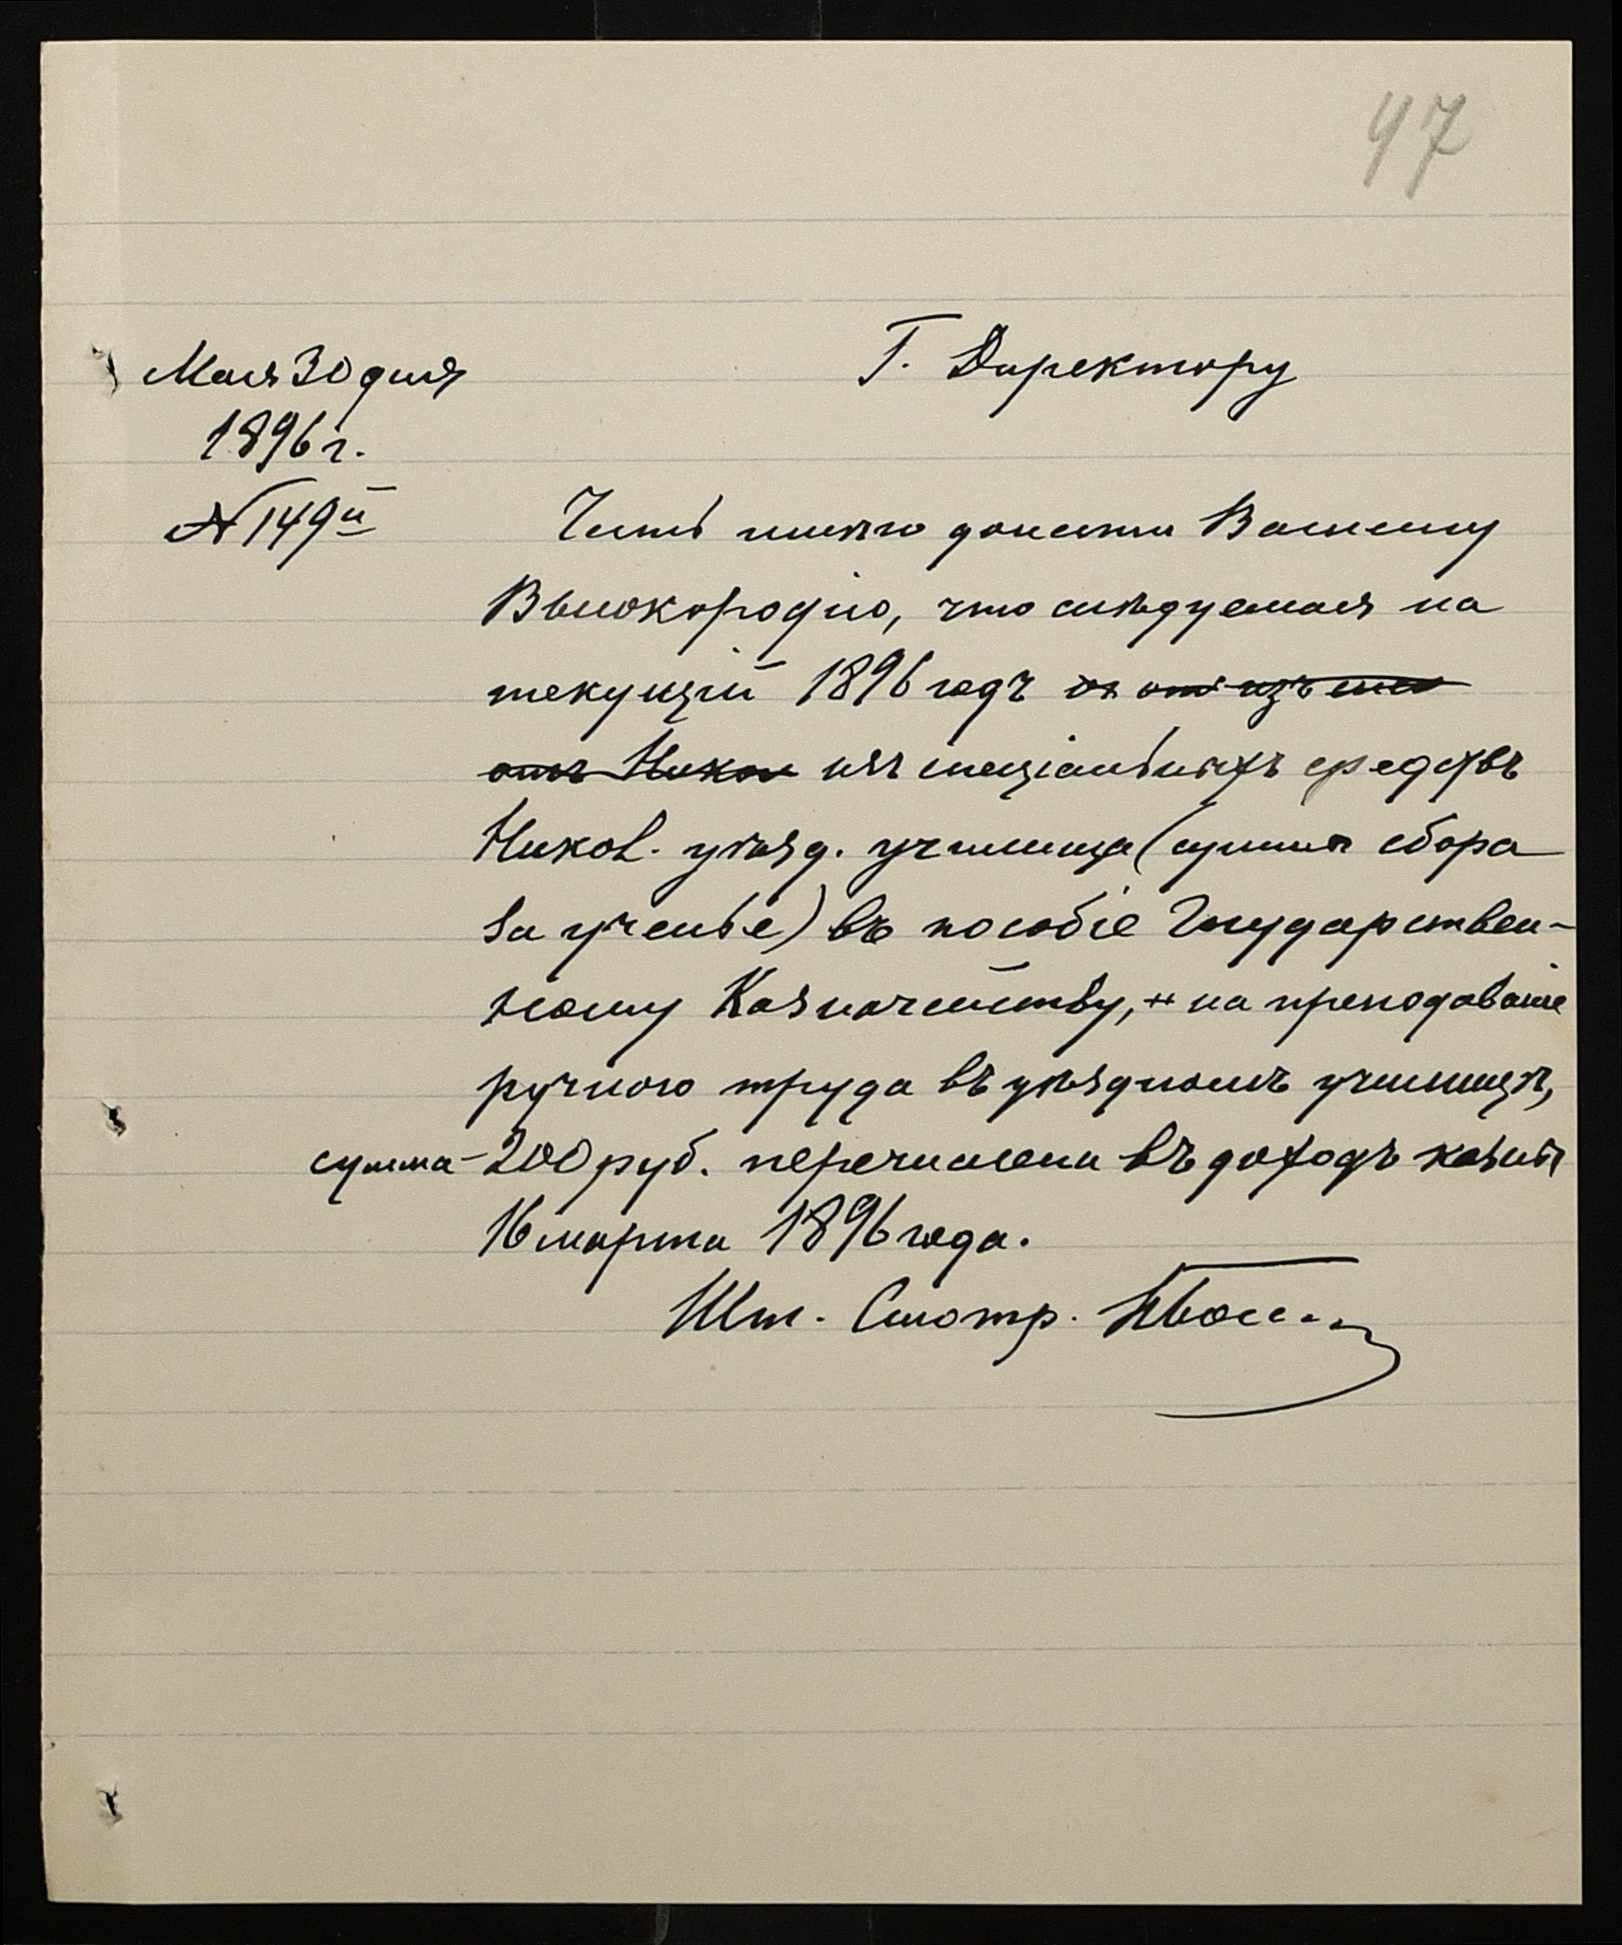 97
Мая 30 дня
1896 г.
№ 149й
Г. Директору
Честь имѣю донести Вашему
Высокородію, что слѣдуемая на
текущій 1896 годъ
отъ Никол изъ спеціальныхъ средствъ
Никол. уѣзд. училища (суммы сбора
за ученье) въ пособіе Государствен-
ному Казначейству, на преподаваніе
ручного труда въ уѣздномъ училищѣ,
сумма - 200 руб. перечислена въ доходъ казны
16 марта 1896 года.
Шт. Смотр.